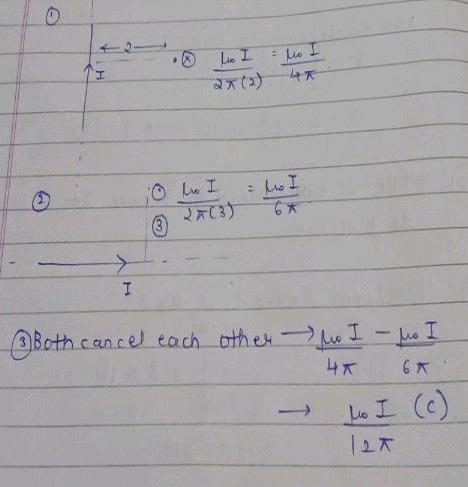 ①
← 2 →
I
. ⊗ μ₀ I / 2π(2) = μ₀ I / 4π
②
⊙ μ₀ I / 2π(3) = μ₀ I / 6π
③
I
③ Both cancel each other → μ₀ I / 4π − μ₀ I / 6π
→ μ₀ I / 12π (C)